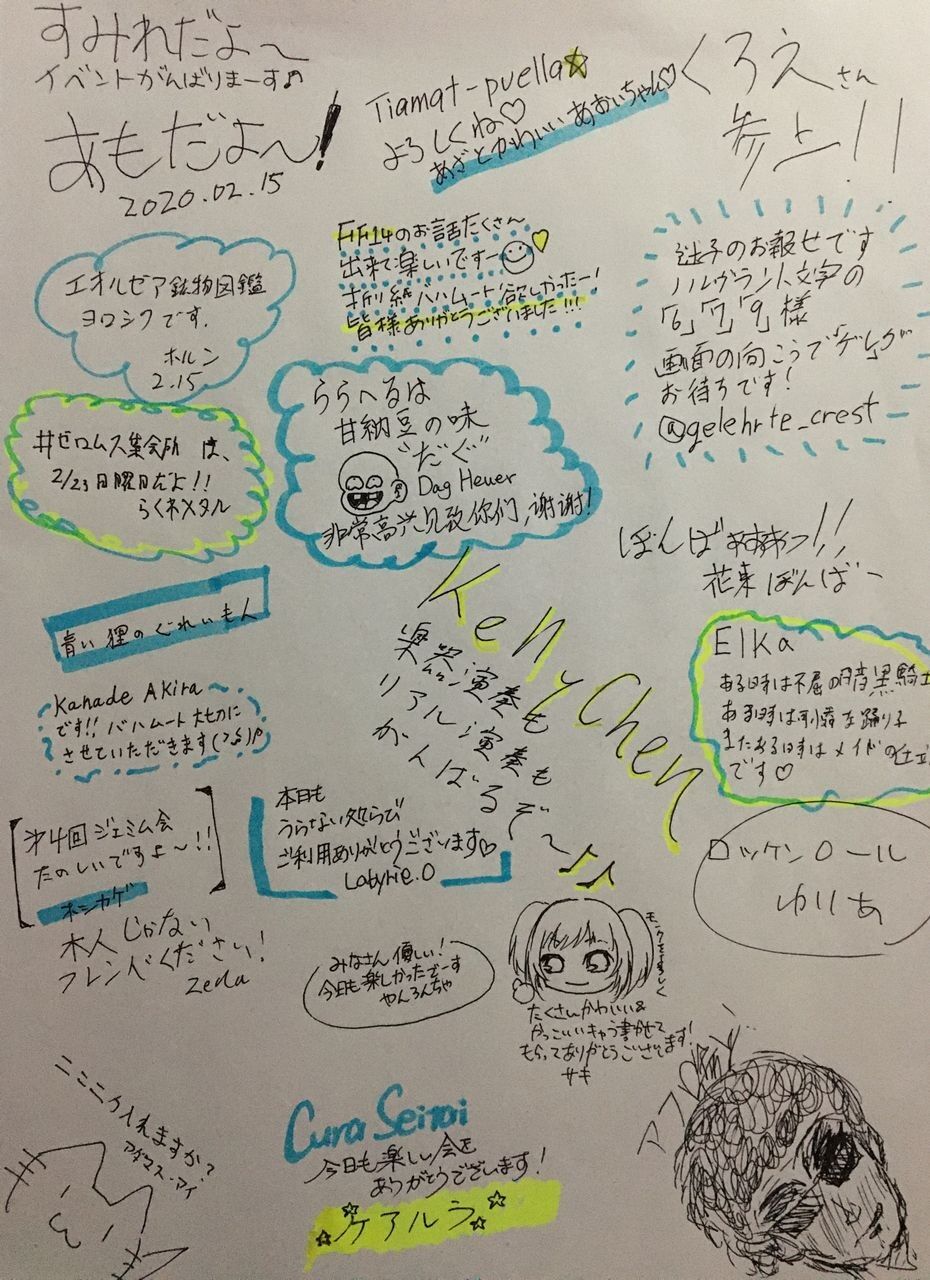 すみれだよ〜
イベントがんばりまーす♪
あもだよ〜!
2020.02.15
Tiamat-puella☆
よろしくね♡
あざとかわいいあおいちゃん♡
くろえさん
参上!!
エオルゼア鉱物図鑑
ヨロシクです.
ホルン
2.15
FF14のお話たくさん
出来て楽しいですー
折り紙バハムート欲しかったー!
皆様ありがとうございました!!!
迷子のお報せです
ノルヴラント文字の
「6」「7」「9」様
画面の向こうで「ゲレ」が
お待ちです!
@gelehrte_crest
#ゼロムス集会所 は、
2/23日曜日だよ!!
らくネメタル
ららへるは
甘納豆の味
"だぐ"
Dag Heuer
非常高兴见到你们,谢谢!
ぼんばぁぁぁっ!!
花束ぼんばー
青い狸のぐれいもん
Keny Chen
楽器演奏も
リアル演奏も
がんばるぞ〜♪♪
Elka
ある時は不屈の暗黒騎士
ある時は可憐な踊り子
またある時はメイドの
です♡
Kanade Akira
です!!バハムート大切に
させていただきます
第4回ジェミム会
たのしいですよ〜!!
ホシカゲ
木人じゃない
フレンドください!
Zena
本日も
うらない処らびで
ご利用ありがとうございます♡
Labyrie.O
ロッケンロール
ゆりあ
みなさん優しい!
今日も楽しかったでーす
やんろんちゃ
モンクをよろしく
たくさんかわいい&
かっこいいキャラ書かせて
もらってありがとうございます!
サキ
ニンニク入れますか?
アダマス・アイ
Cura Seinai
今日も楽しい会を
ありがとうございます!
☆ケアルラ☆☆